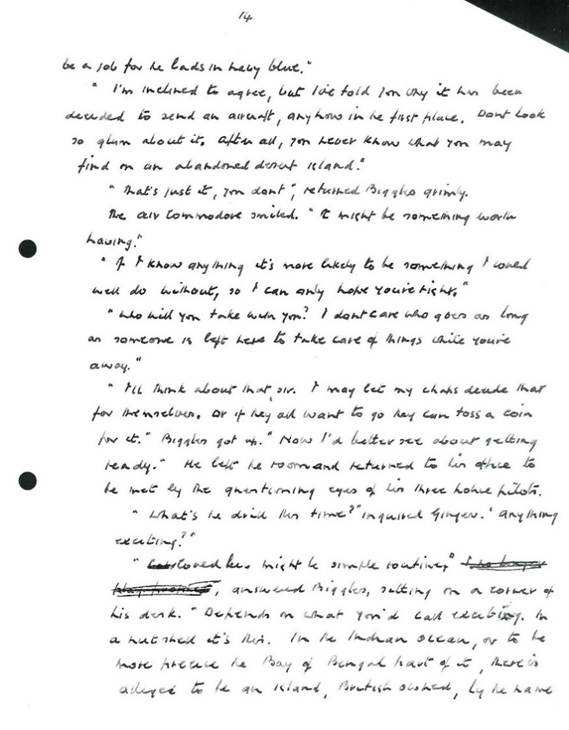 14
be a job for he lads in navy blue."
" I'm inclined to agree, but I've told you why it has been
decided to send an aircraft, anyhow in he first place. Dont look
so glum about it. After all, you never know what you may
find on an abandoned desert island."
" That's just it, you dont", returned Biggles grimly.
The air Commodore smiled. " It might be something worth
having."
" If I know anything it's more likely to be something I could
well do without, so I can only hope you're right."
" Who will you take with you? I dont care who goes as long
as someone is left here to take care of things while you're
away."
" I'll think about that, sir. I may let my chaps decide that
for themselves. Or if hey all want to go hey can toss a coin
for it." Biggles got up. " Now I'd better see about getting
ready." He left he room and returned to his office to
be met by the questioning eyes of his three police pilots.
" What's he drill this time?" inquired Ginger. "Anything
exciting?"
" Could be. Might be simple routine,"
, answered Biggles, sitting on a corner of
his desk. " Depends on what you'd call exciting. In
a nutshell it's this. In he Indian Ocean, or to be
more precise he Bay of Bengal part of it, there is
alleged to be an island, British owned, by he name